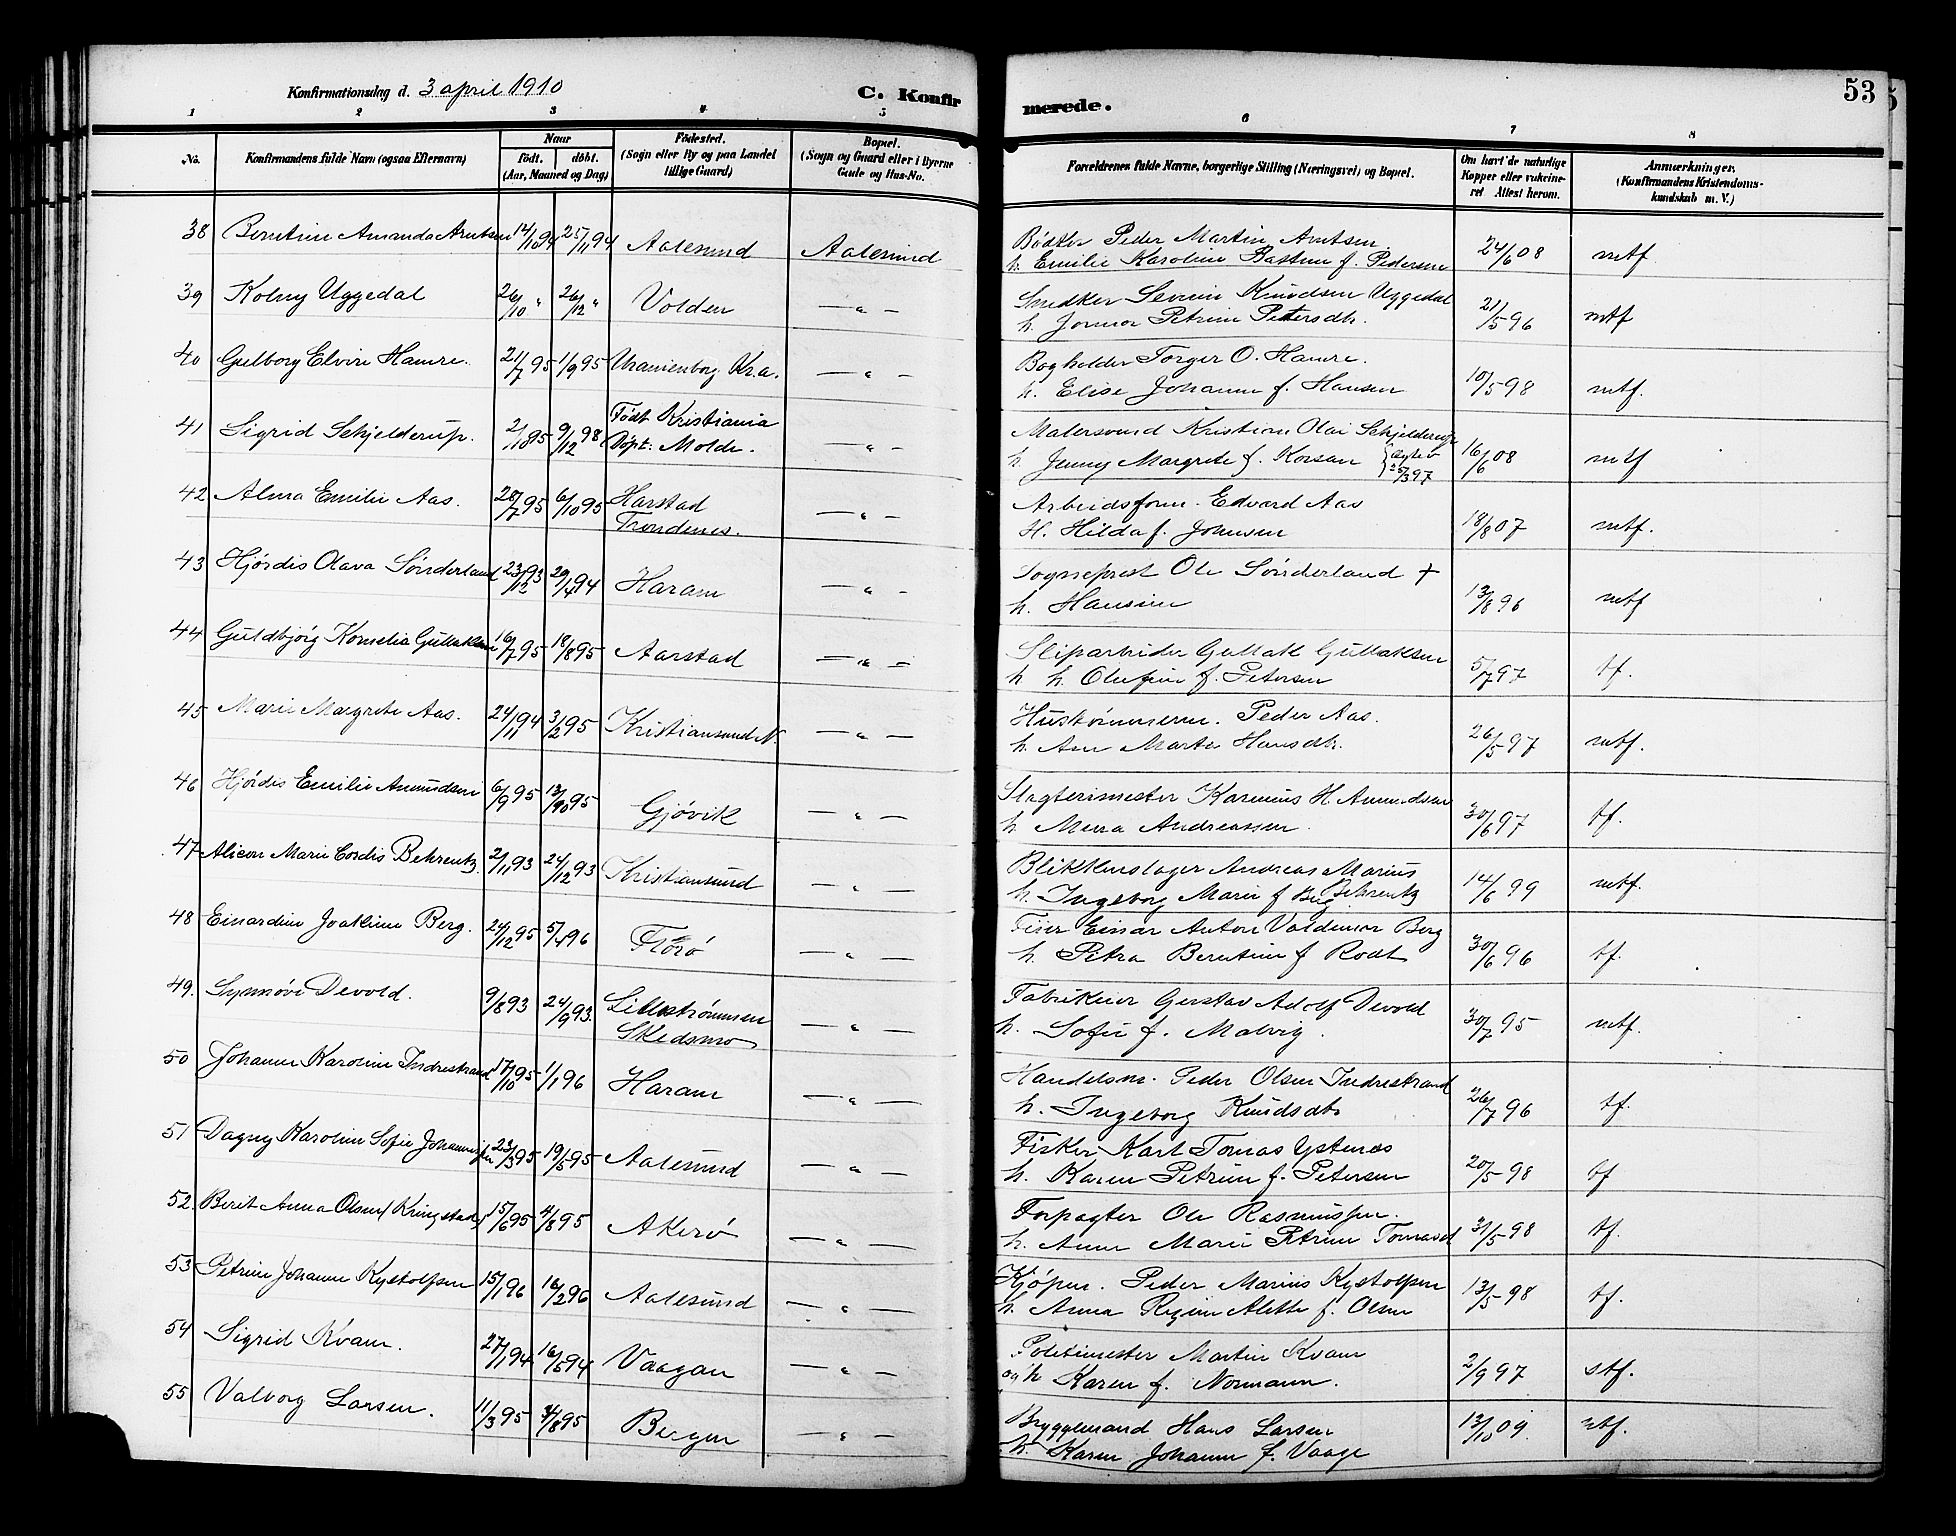 Konfirmationsdag d. 3 april 1910
C. Konfir
merede.
53
1 2 3 4 5 6 7 8
No.
Konfirmandens fulde Navn (ogsaa Efternavn)
Naar
født. døbt.
(Aar, Maaned og Dag)
Fødested.
(Sogn eller By og paa Landet
tillige Gaard)
Bopæl.
(Sogn og Gaard eller i Byerne
Gade og Hus-No.
Forældrenes fulde Navne, borgerlige Stilling (Næringsvei) og Bopæl.
Om havt de naturlige
Kopper eller vakcine-
ret Attest herom.
Anmærkninger.
(Konfirmandens Kristendoms-
kundskab m. V.)
38 Berntine Amanda Arntsen 14/10 94 25/11 94 Aalesund Aalesund
Bødker Peder Martin Arntsen
h. Emilie Karoline Bastine f. Pedersen 24/6 08 mtf
39 Kolny Uggedal 26/10 " 26/12 " Volden — " —
Snedker Severin Knudsen Uggedal
h. Petrine Petersdtr. 21/5 96 mtf
40 Gulborg Elvire Hamre. 21/7 95 1/9 95 Uranienborg Kr.a. — " —
Bogholder Torger O. Hamre.
h. Elise Johanne f. Hansen 10/5 98 mtf.
41 Sigrid Schjelderup. 9/12 98 Født Kristiania
Døpt. Molde. — " —
Malersvend Kristian Olai Schjelderup
h. Jenny Margrete f. Korsan 16/6 08 mtf
42 Alma Emilie Aas. 28/7 95 6/10 95 Harstad
Trondenes. — " —
Arbeidsform. Edvard Aas
H. Hilda f. Johnsen 18/8 07 mtf.
43 Hjørdis Olava Sønderland 23/12 93 29/4 94 Haram — " —
Sogneprest Ole Sønderland +
h. Hansine 13/8 96 mtf
44 Guldbjørg Kornelia Gullaksen 16/7 95 18/8 95 Aarstad — " —
Sliparbeider Gullak Gullaksen
h h. Olufine f. Petersen 5/7 97 tf.
45 Marie Margrete Aas. 24/11 94 3/2 95 Kristiansund N. — " —
Hustømmerm. Peder Aas.
h. Ane Marta Hansdtr. 26/5 97 mtf.
46 Hjørdis Emilie Amundsen 6/9 95 13/10 95 Gjøvik — " —
Slagterimester Karenius H. Amundsen
h. Mena Andreassen. 30/6 97 tf.
47 Alicon Marie Cordis Behrentz. 2/11 93 24/12 93 Kristiansund — " —
Blikkenslager Andreas Marius
Behrentz
h. Ingeborg Marie f Berg 14/6 99 mtf.
48 Einardine Joakime Berg. 24/12 95 5/4 96 Florø — " —
Einar Anton Valdemar Berg
h. Petra Berntine f Rodt 30/6 96 tf.
49. Synnøve Devold. 9/8 93 24/9 93. Lillestrømmen
Skedsmo — " —
Fabrikeier Gustav Adolf Devold
h. Sofie f. Malvig. 30/7 95 mtf.
50 Johanne Karoline Indrestrand 17/10 95 1/1 96 Haram — " —
Handelsm. Peder Olsen Indrestrand
h. Ingeborg Knudsdtr 26/7 96 tf.
51 Dagny Karoline Sofie Johannessen 23/3 95 19/5 95 Aalesund — " —
Fisker Karl Tomas Ystenes
h. Karen Petrine f. Petersen 20/5 98 tf
52. Berit Anna Olsen (Kringstad) 15/6 95 4/8 95 Akerø — " —
Forpagter Ole Rasmussen.
h. Anne Marie Petrine Tomasd 31/5 98 tf.
53 Petrine Johanne Kystolfsen 15/1 96 16/2 96 Aalesund — " —
Kjøpm. Peder Marius Kystolfsen
h. Anna Regine Alette f. Olsen 13/5 98 tf.
54 Sigrid Kvam. 27/1 94 16/5 94 Vaagan — " —
Politimester Martin Kvam
og h Karen f. Normann. 2/9 97 stf.
55 Valborg Larsen. 11/3 95 95 Bergen — " —
Bryggemand Hans Larsen
h. Karen Johanne f. Vaage 13/10 09. mtf.